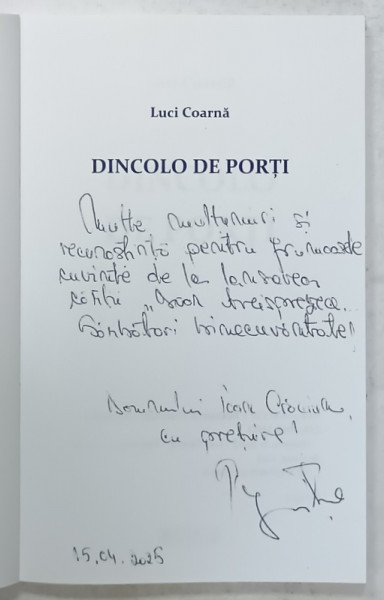 Luci Coarnă
DINCOLO DE PORȚI
Multe mulțumiri și
recunoștință pentru frumoasele
cuvinte de la lansarea
cărții „Doar treisprezece...
Sărbători binecuvântate!
Domnului Ioan Crăciun,
cu prețuire!
15.04.2025